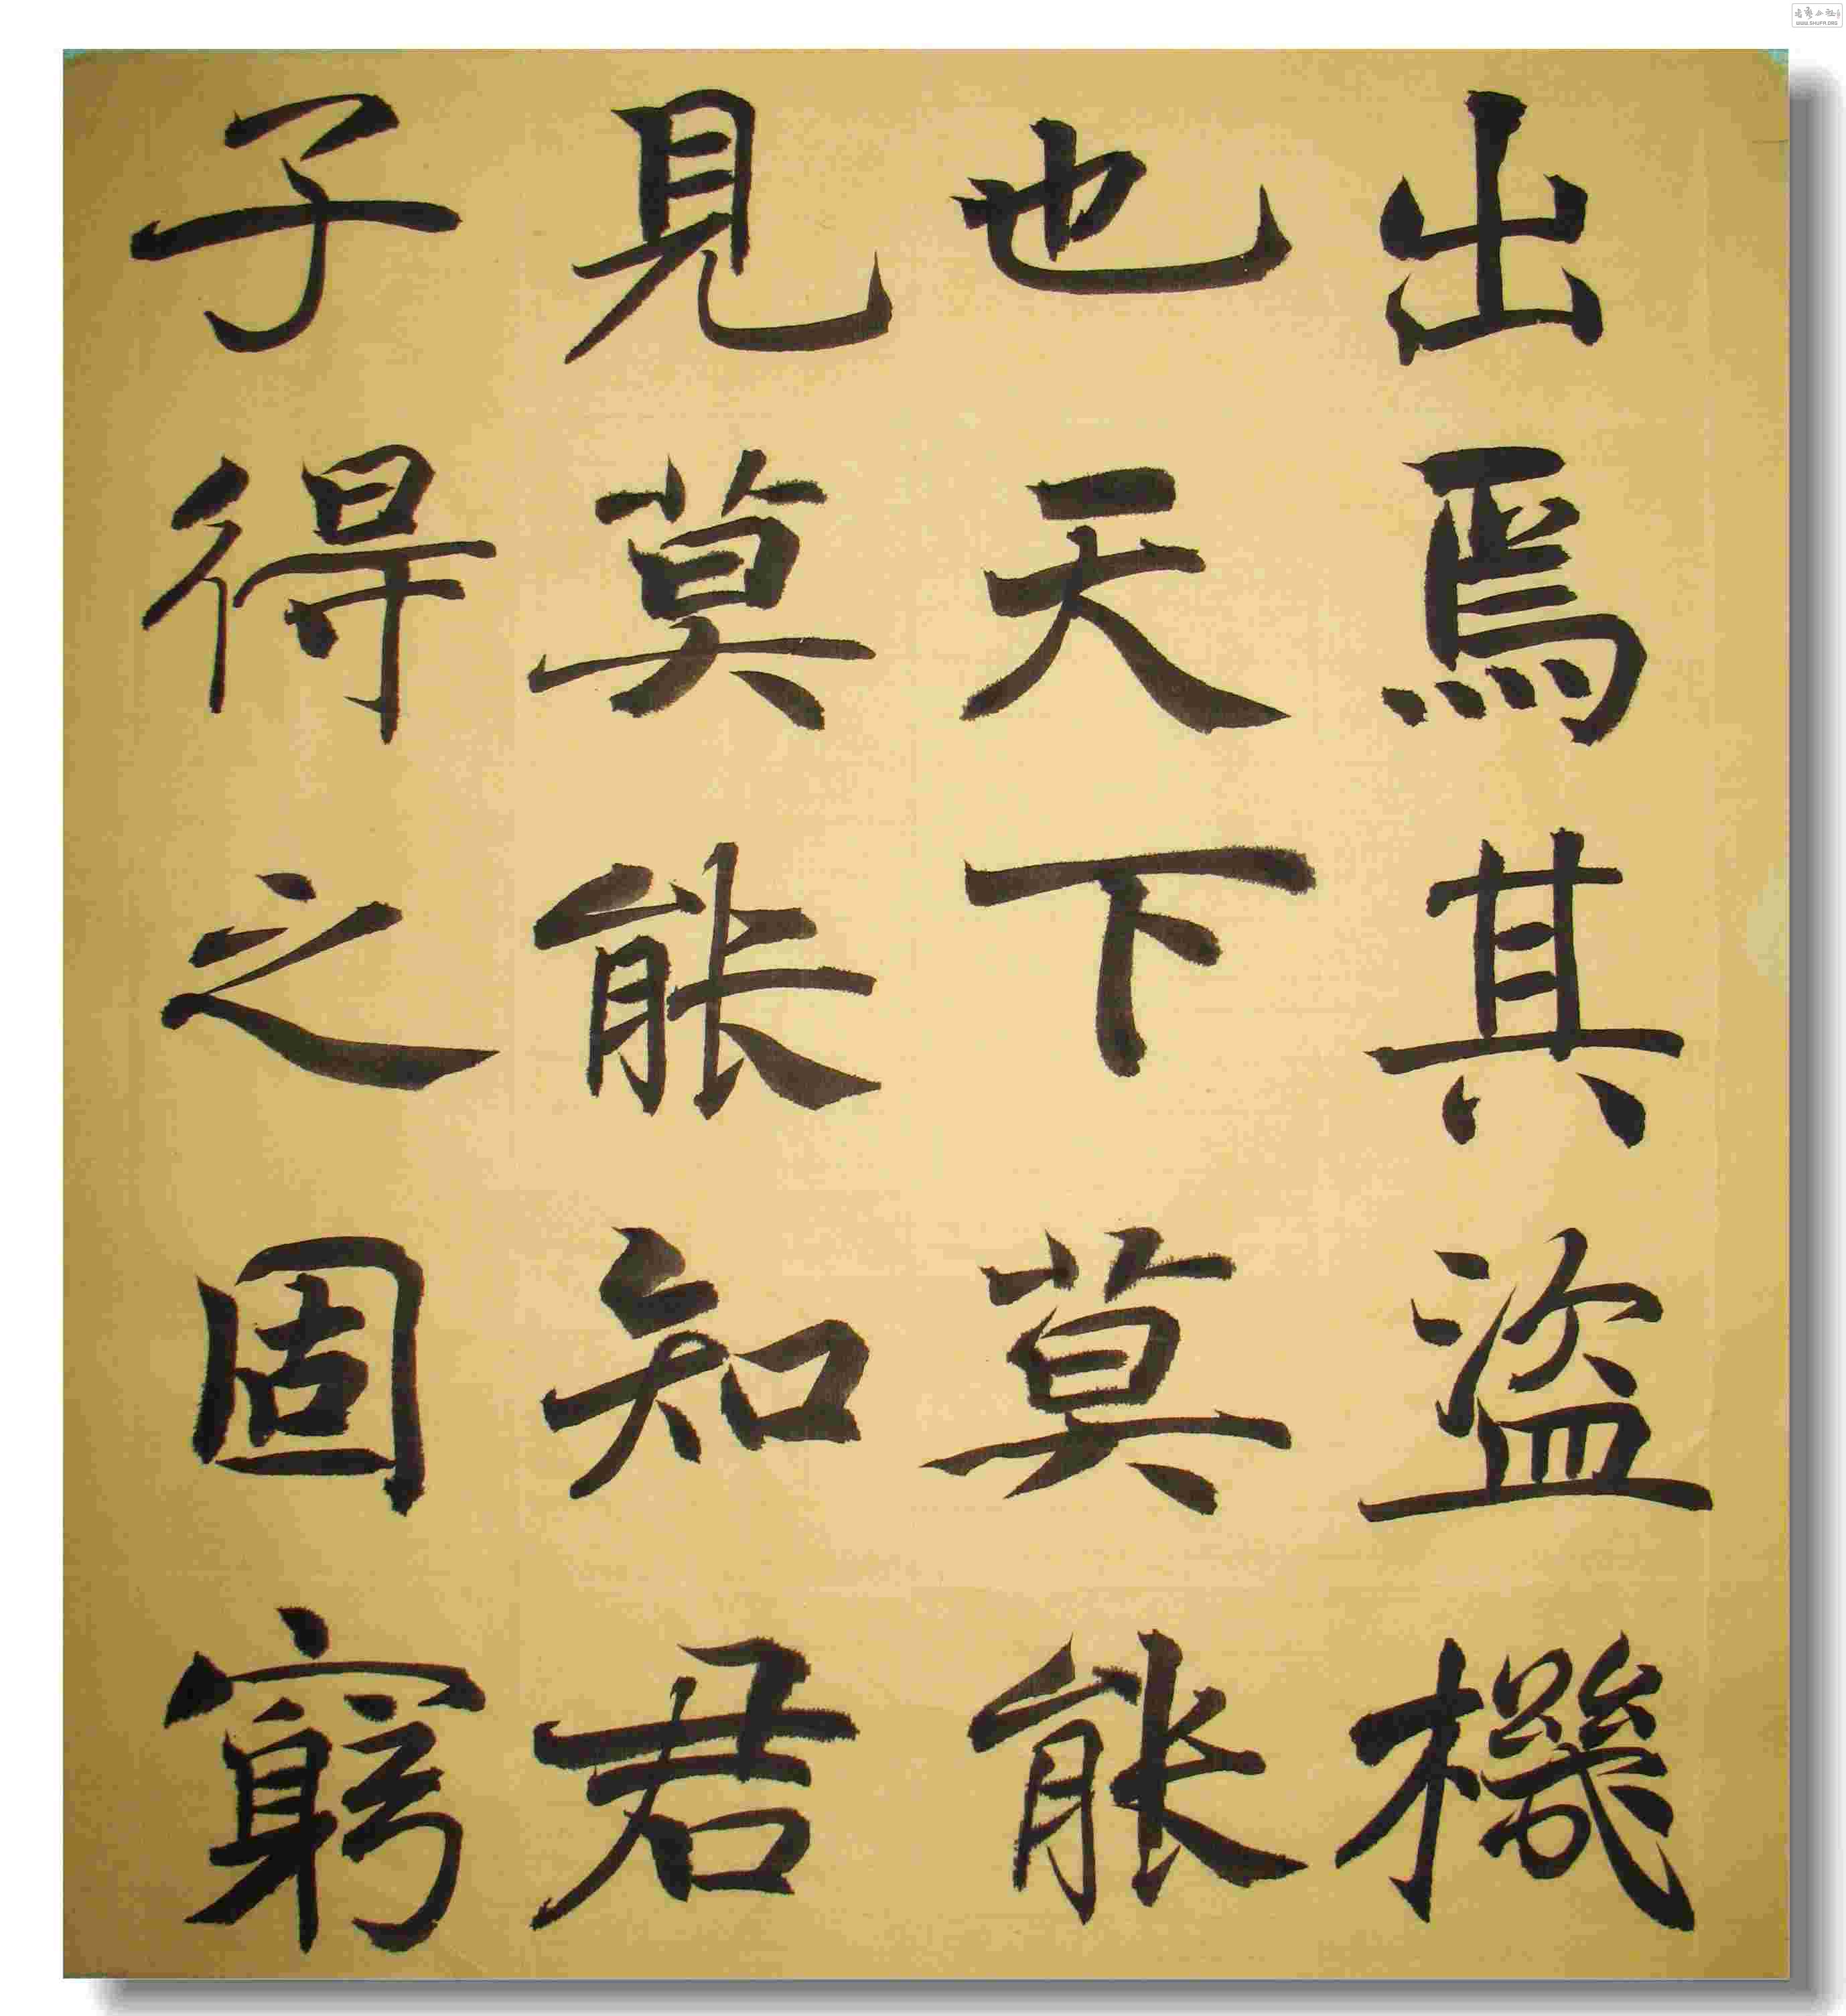 出焉其盜機
也天下莫能
見莫能知君
子得之固窮
WWW.SHUFA.ORG